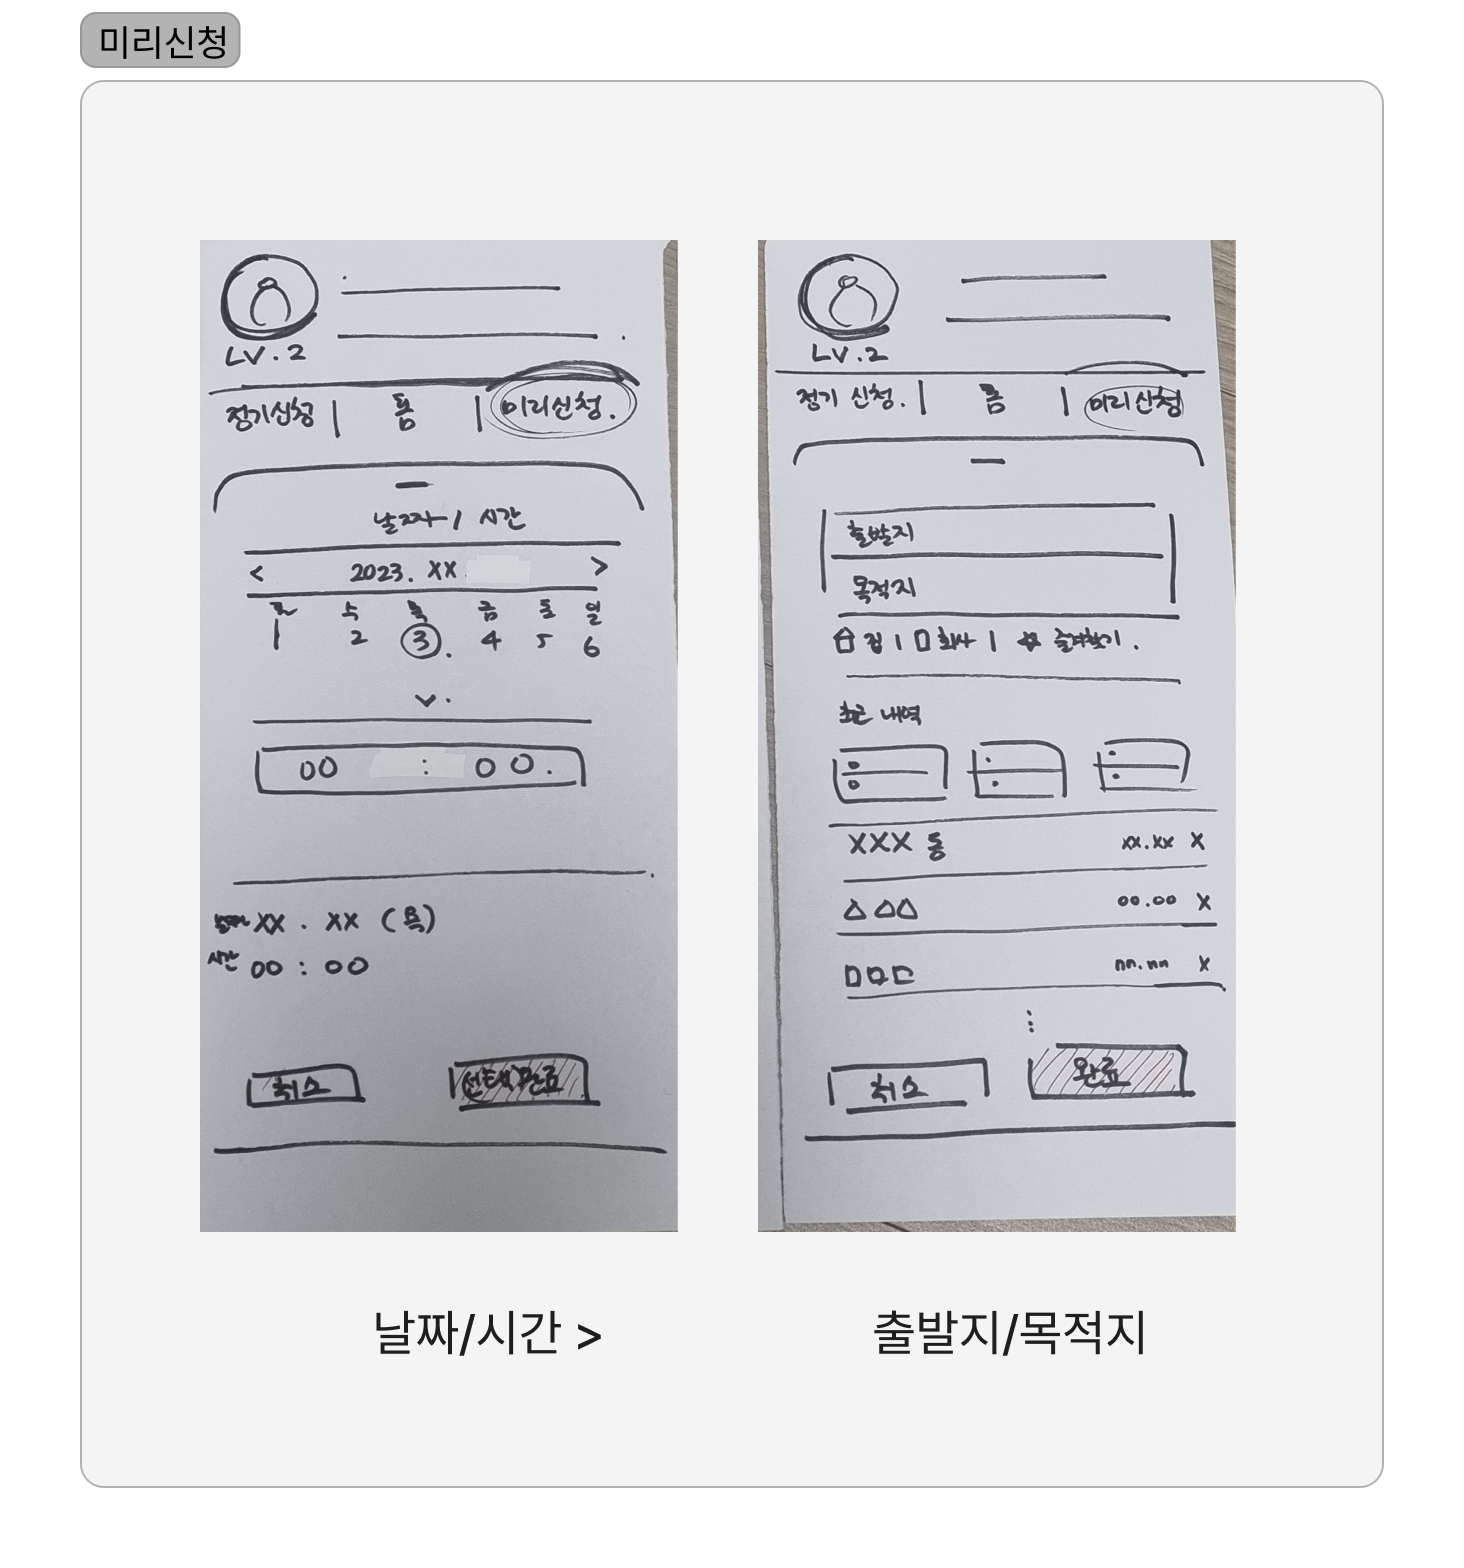 미리신청
LV.2
정기신청 | 홈 | 미리신청.
날짜 / 시간
< 2023. XX >
수 목 금 토 일
1 2 3 4 5 6
00 : 00.
날짜 XX . XX (목)
시간 00 : 00
취소 선택완료
LV.2
정기 신청. | 홈 | 미리신청
출발지
목적지
집 | 회사 | 즐겨찾기.
최근 내역
XXX 동 xx.xx X
00.00 X
nn.nn X
취소 완료
날짜/시간 > 출발지/목적지